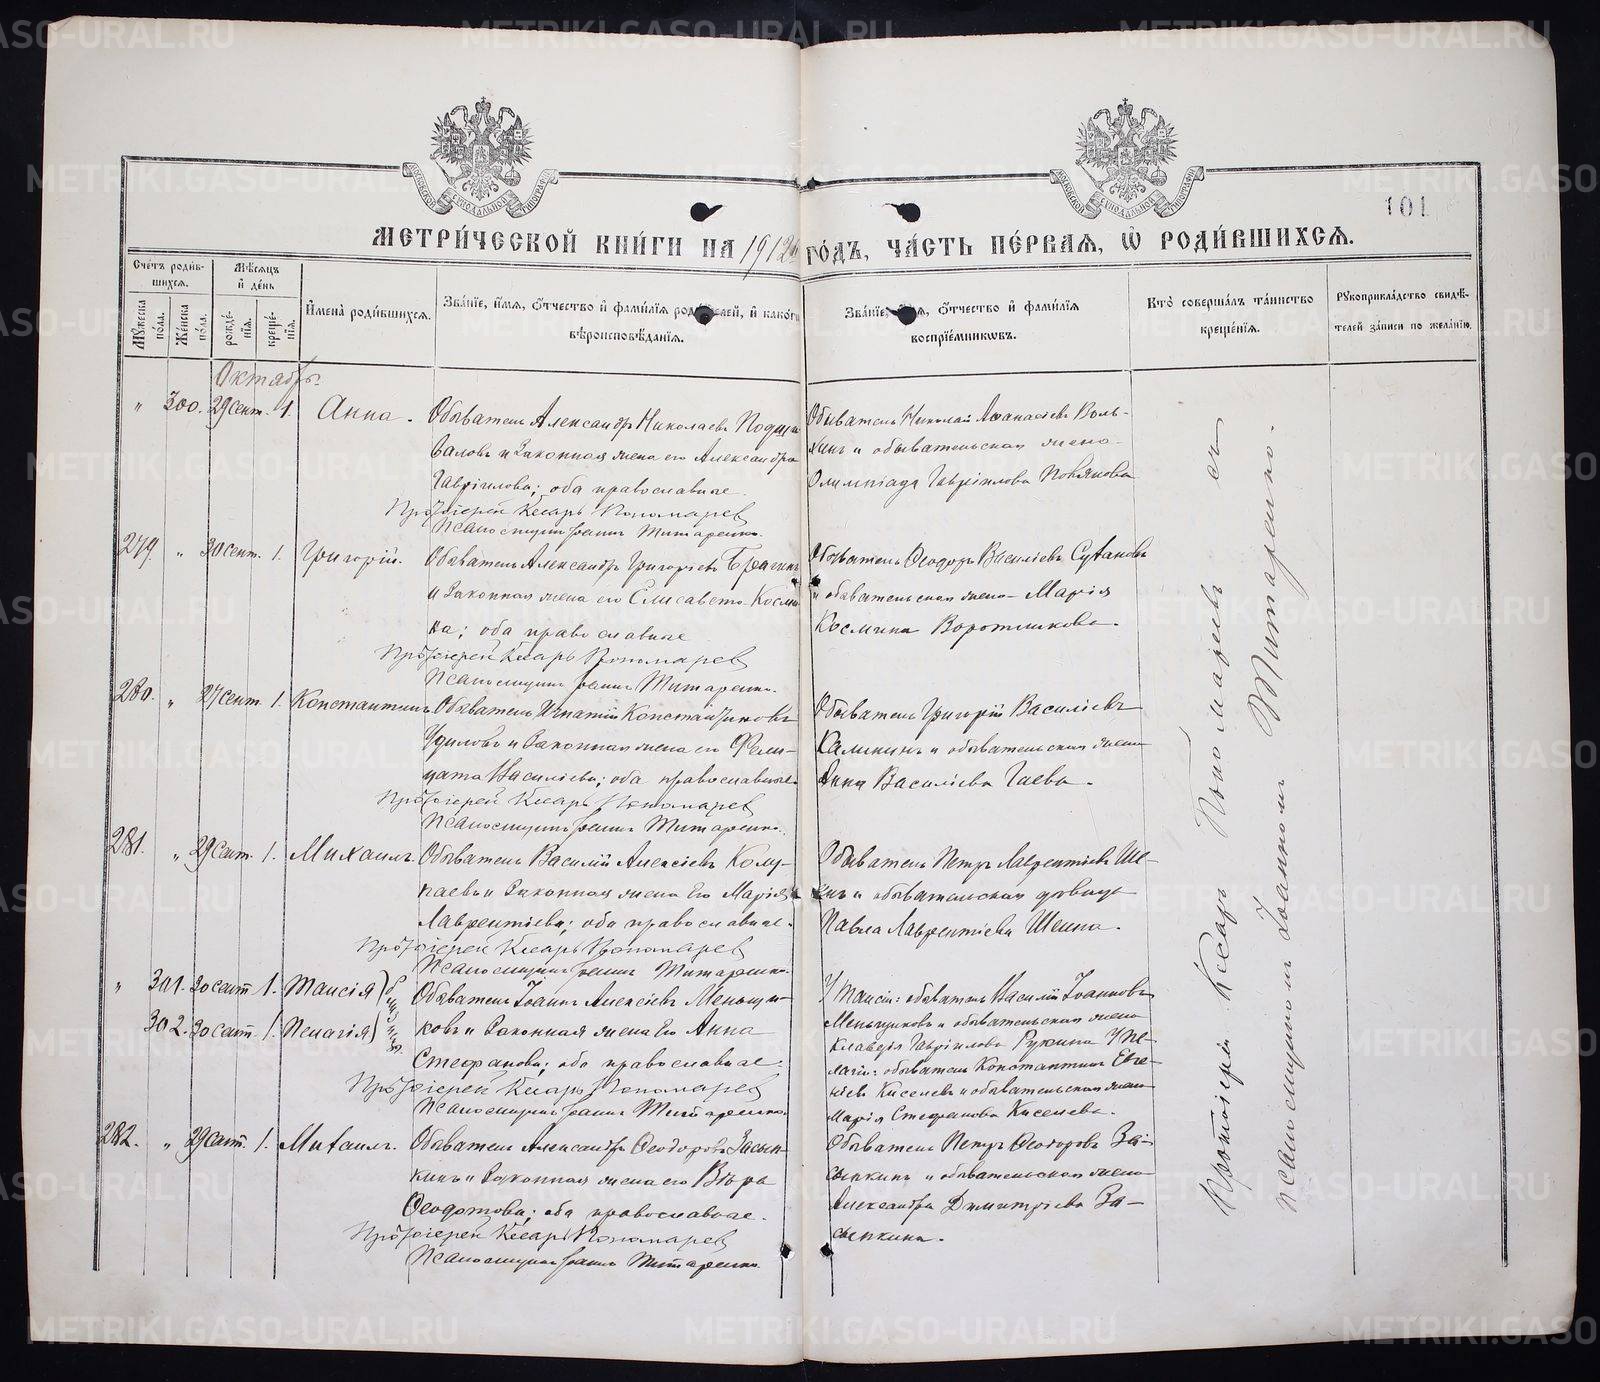 101
МЕТРИЧЕСКОЙ КНИГИ НА 1912й ГОДЪ, ЧАСТЬ ПЕРВАЯ, Ѡ РОДИВШИХСЯ.
Счетъ родив-
шихся.
Мужеска пола.
Женска пола.
Мѣсяцъ
и день
рожде-
нія.
креще-
нія.
Имена родившихся.
Званіе, имя, отчество и фамилія родителей, и какого
вѣроисповѣданія.
Званіе, имя, отчество и фамилія
воспріемниковъ.
Кто совершалъ таинство
крещенія.
Рукоприкладство свидѣ-
телей записи по желанію.
Октябрь.
" 300. 29 сент. 1. Анна.
Обыватель Александръ Николаевъ Подши-
валовъ и законная жена его Александра
Гавріилова; оба православные.
Протоіерей Кесарь Пономарев
Псаломщикъ Іоаннъ Титаренко.
Обыватель Николай Аѳанасіевъ Воль-
хинъ и обывательская жена
Олимпіада Гавріилова
279. " 30 сент. 1. Григорій.
Обыватель Александръ Григоріевъ Брагинъ
и законная жена его Елисавета Косми-
на; оба православные
Протоіерей Кесарь Пономарев
Псаломщикъ Іоаннъ Титаренко.
Обыватель Ѳеодоръ Василіевъ
и обывательская жена Марія
Космина Воротникова.
280. " 27 сент. 1. Константинъ.
Обыватель Игнатій Константиновъ
и законная жена его Фели-
цата Василіева; оба православные.
Протоіерей Кесарь Пономарев
Псаломщикъ Іоаннъ Титаренко.
Обыватель Григорій Василіевъ
Калинкинъ и обывательская жена
Анна Василіева Гаева.
281. " 29 сент. 1. Михаилъ.
Обыватель Василій Алексіевъ Колу-
паевъ и законная жена его Марія
Лаврентіева; оба православные.
Протоіерей Кесарь Пономарев
Псаломщикъ Іоаннъ Титаренко.
Обыватель Петръ Лаврентіевъ Ше-
инъ и обывательская девица
Павла Лаврентіева Шеина.
" 301. 30 сент. 1. Таисія
302. 30 сент. 1. Пелагія
близнецы
Обыватель Іоаннъ Алексіевъ Меньши-
ковъ и законная жена его Анна
Стефанова; оба православные.
Протоіерей Кесарь Пономарев
Псаломщикъ Іоаннъ Титаренко.
У Таисіи: обыватель Василій Іоанновъ
Меньщиковъ и обывательская жена
Клавдія Гавріилова У Пе-
лагіи: обыватель Константинъ Евге-
ніевъ Киселевъ и обывательская жена
Марія Стефанова Киселева.
282. " 29 сент. 1. Михаилъ.
Обыватель Александръ Ѳеодоровъ Засып-
кинъ и законная жена его Вѣра
Ѳеодотова; оба православные.
Протоіерей Кесарь Пономарев
Псаломщикъ Іоаннъ Титаренко.
Обыватель Петръ Ѳеодоровъ За-
сыпкинъ и обывательская жена
Александра Димитріева За-
сыпкина.
Протоіерей Кесарь Пономаревъ съ
псаломщикомъ Іоанномъ Титаренко.
METRIKI.GASO-URAL.RU